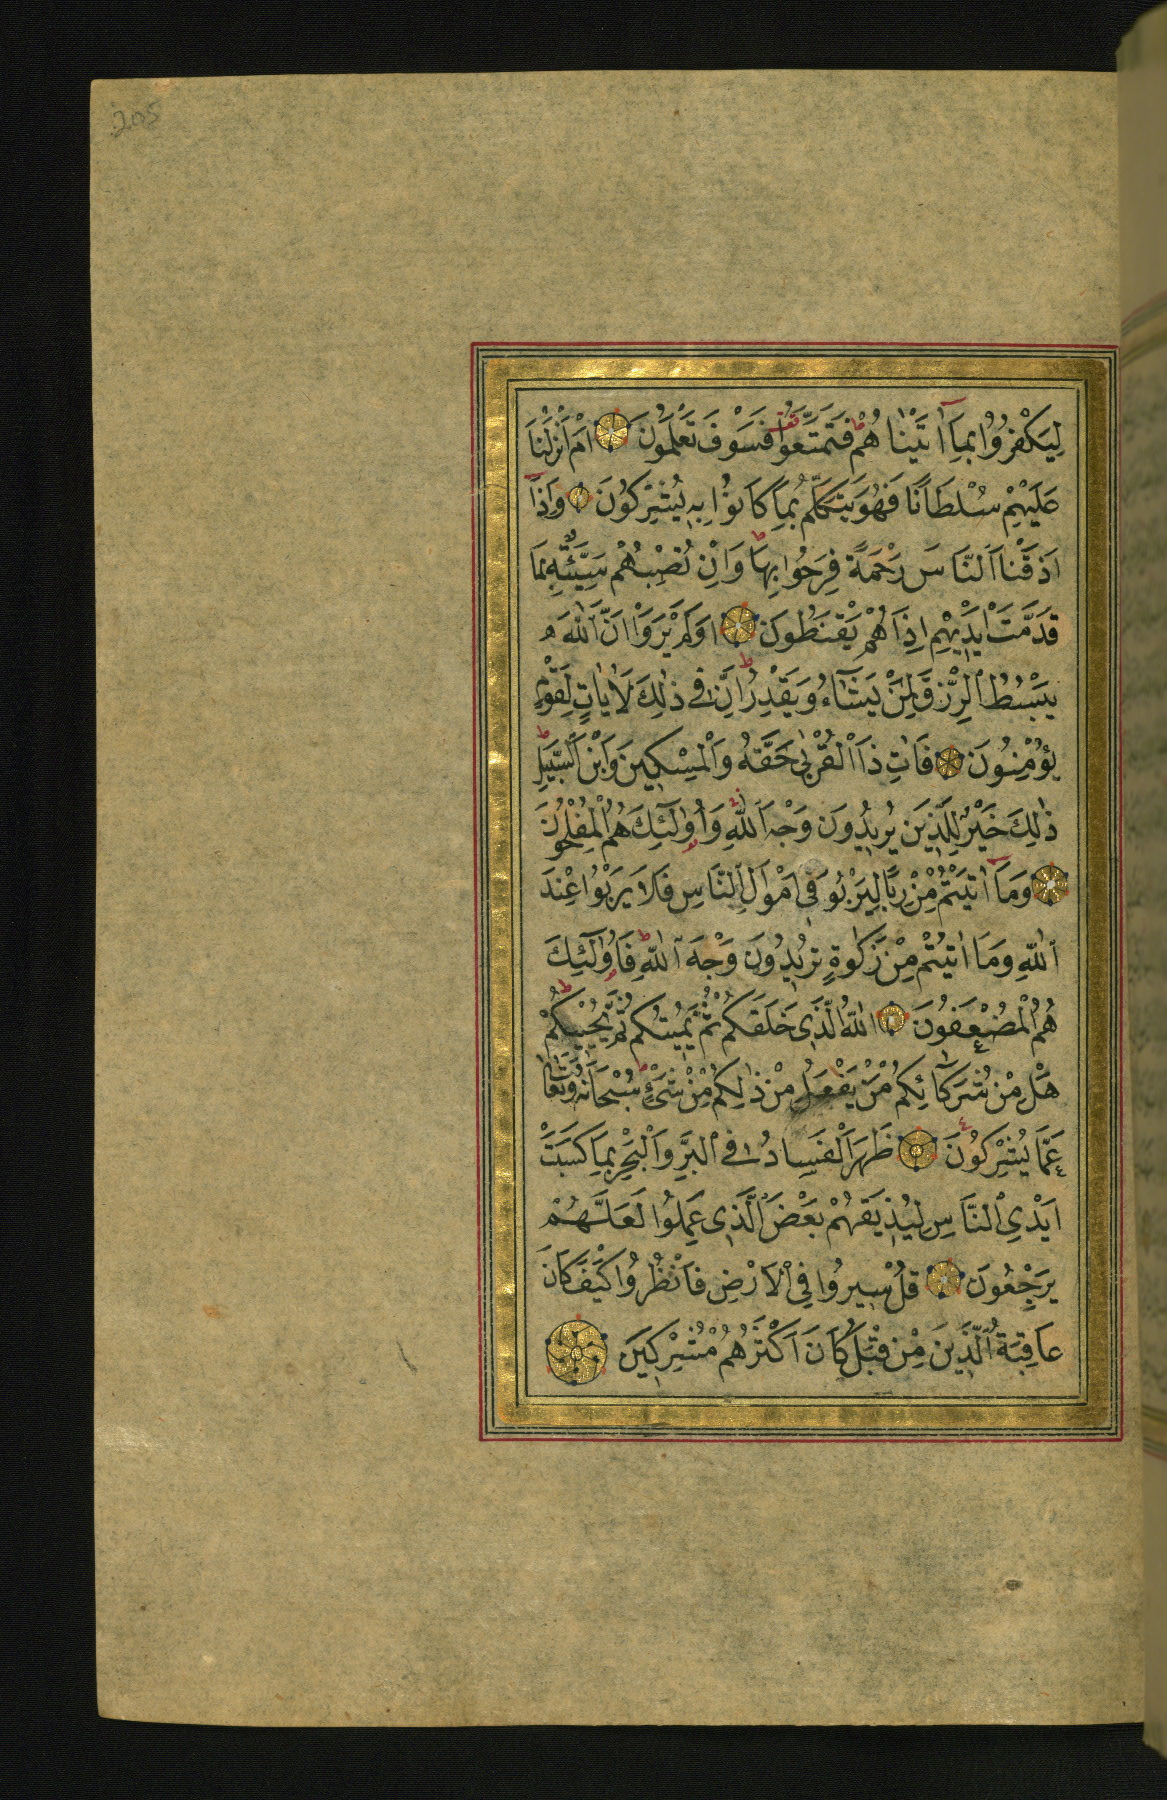 205
لِيَكْفُرُوا بِمَآ اٰتَيْنَاهُمْ فَتَمَتَّعُوا فَسَوْفَ تَعْلَمُونَ اَمْ اَنْزَلْنَا
عَلَيْهِمْ سُلْطَانًا فَهُوَ يَتَكَلَّمُ بِمَا كَانُوا بِهِ يُشْرِكُونَ وَاِذَآ
اَذَقْنَا النَّاسَ رَحْمَةً فَرِحُوا بِهَا وَاِنْ تُصِبْهُمْ سَيِّئَةٌ بِمَا
قَدَّمَتْ اَيْدِيهِمْ اِذَا هُمْ يَقْنَطُونَ اَوَلَمْ يَرَوْا اَنَّ اللّٰهَ
يَبْسُطُ الرِّزْقَ لِمَنْ يَشَآءُ وَيَقْدِرُ اِنَّ فِي ذٰلِكَ لَاٰيَاتٍ لِقَوْمٍ
يُؤْمِنُونَ فَاٰتِ ذَا الْقُرْبٰى حَقَّهُ وَالْمِسْكِينَ وَابْنَ السَّبِيلِ
ذٰلِكَ خَيْرٌ لِلَّذِينَ يُرِيدُونَ وَجْهَ اللّٰهِ وَاُولٰٓئِكَ هُمُ الْمُفْلِحُونَ
وَمَآ اٰتَيْتُمْ مِنْ رِبًا لِيَرْبُوَ فِي اَمْوَالِ النَّاسِ فَلَا يَرْبُوا عِنْدَ
اللّٰهِ وَمَا اٰتَيْتُمْ مِنْ زَكٰوةٍ تُرِيدُونَ وَجْهَ اللّٰهِ فَاُولٰٓئِكَ
هُمُ الْمُضْعِفُونَ اَللّٰهُ الَّذِي خَلَقَكُمْ ثُمَّ يُمِيتُكُمْ ثُمَّ يُحْيِيكُمْ
هَلْ مِنْ شُرَكَآئِكُمْ مَنْ يَفْعَلُ مِنْ ذٰلِكُمْ مِنْ شَيْءٍ سُبْحَانَهُ وَتَعَالٰى
عَمَّا يُشْرِكُونَ ظَهَرَ الْفَسَادُ فِي الْبَرِّ وَالْبَحْرِ بِمَا كَسَبَتْ
اَيْدِي النَّاسِ لِيُذِيقَهُمْ بَعْضَ الَّذِي عَمِلُوا لَعَلَّهُمْ
يَرْجِعُونَ قُلْ سِيرُوا فِي الْاَرْضِ فَانْظُرُوا كَيْفَ كَانَ
عَاقِبَةُ الَّذِينَ مِنْ قَبْلُ كَانَ اَكْثَرُهُمْ مُشْرِكِينَ